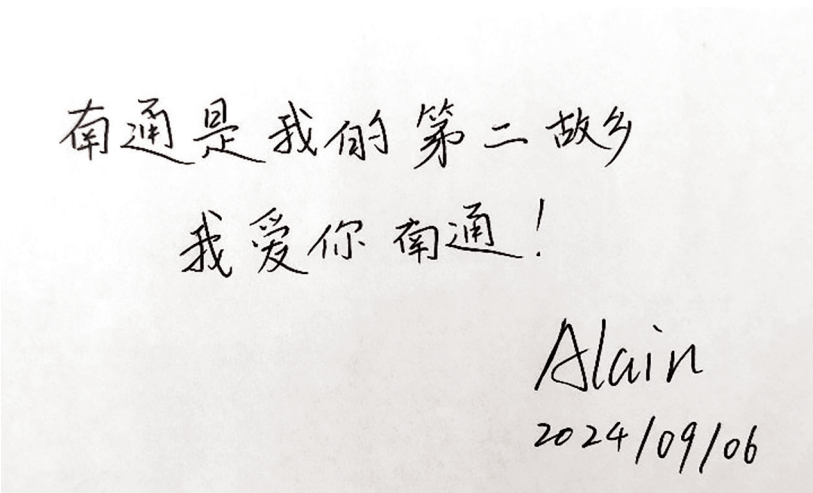 南通是我的第二故乡
我爱你南通！
Alain
2024/09/06